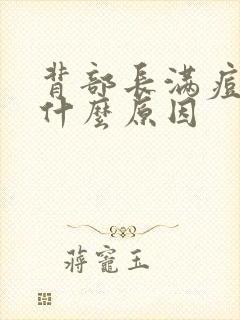 背部長滿痘
什麼原因
蔣寵玉